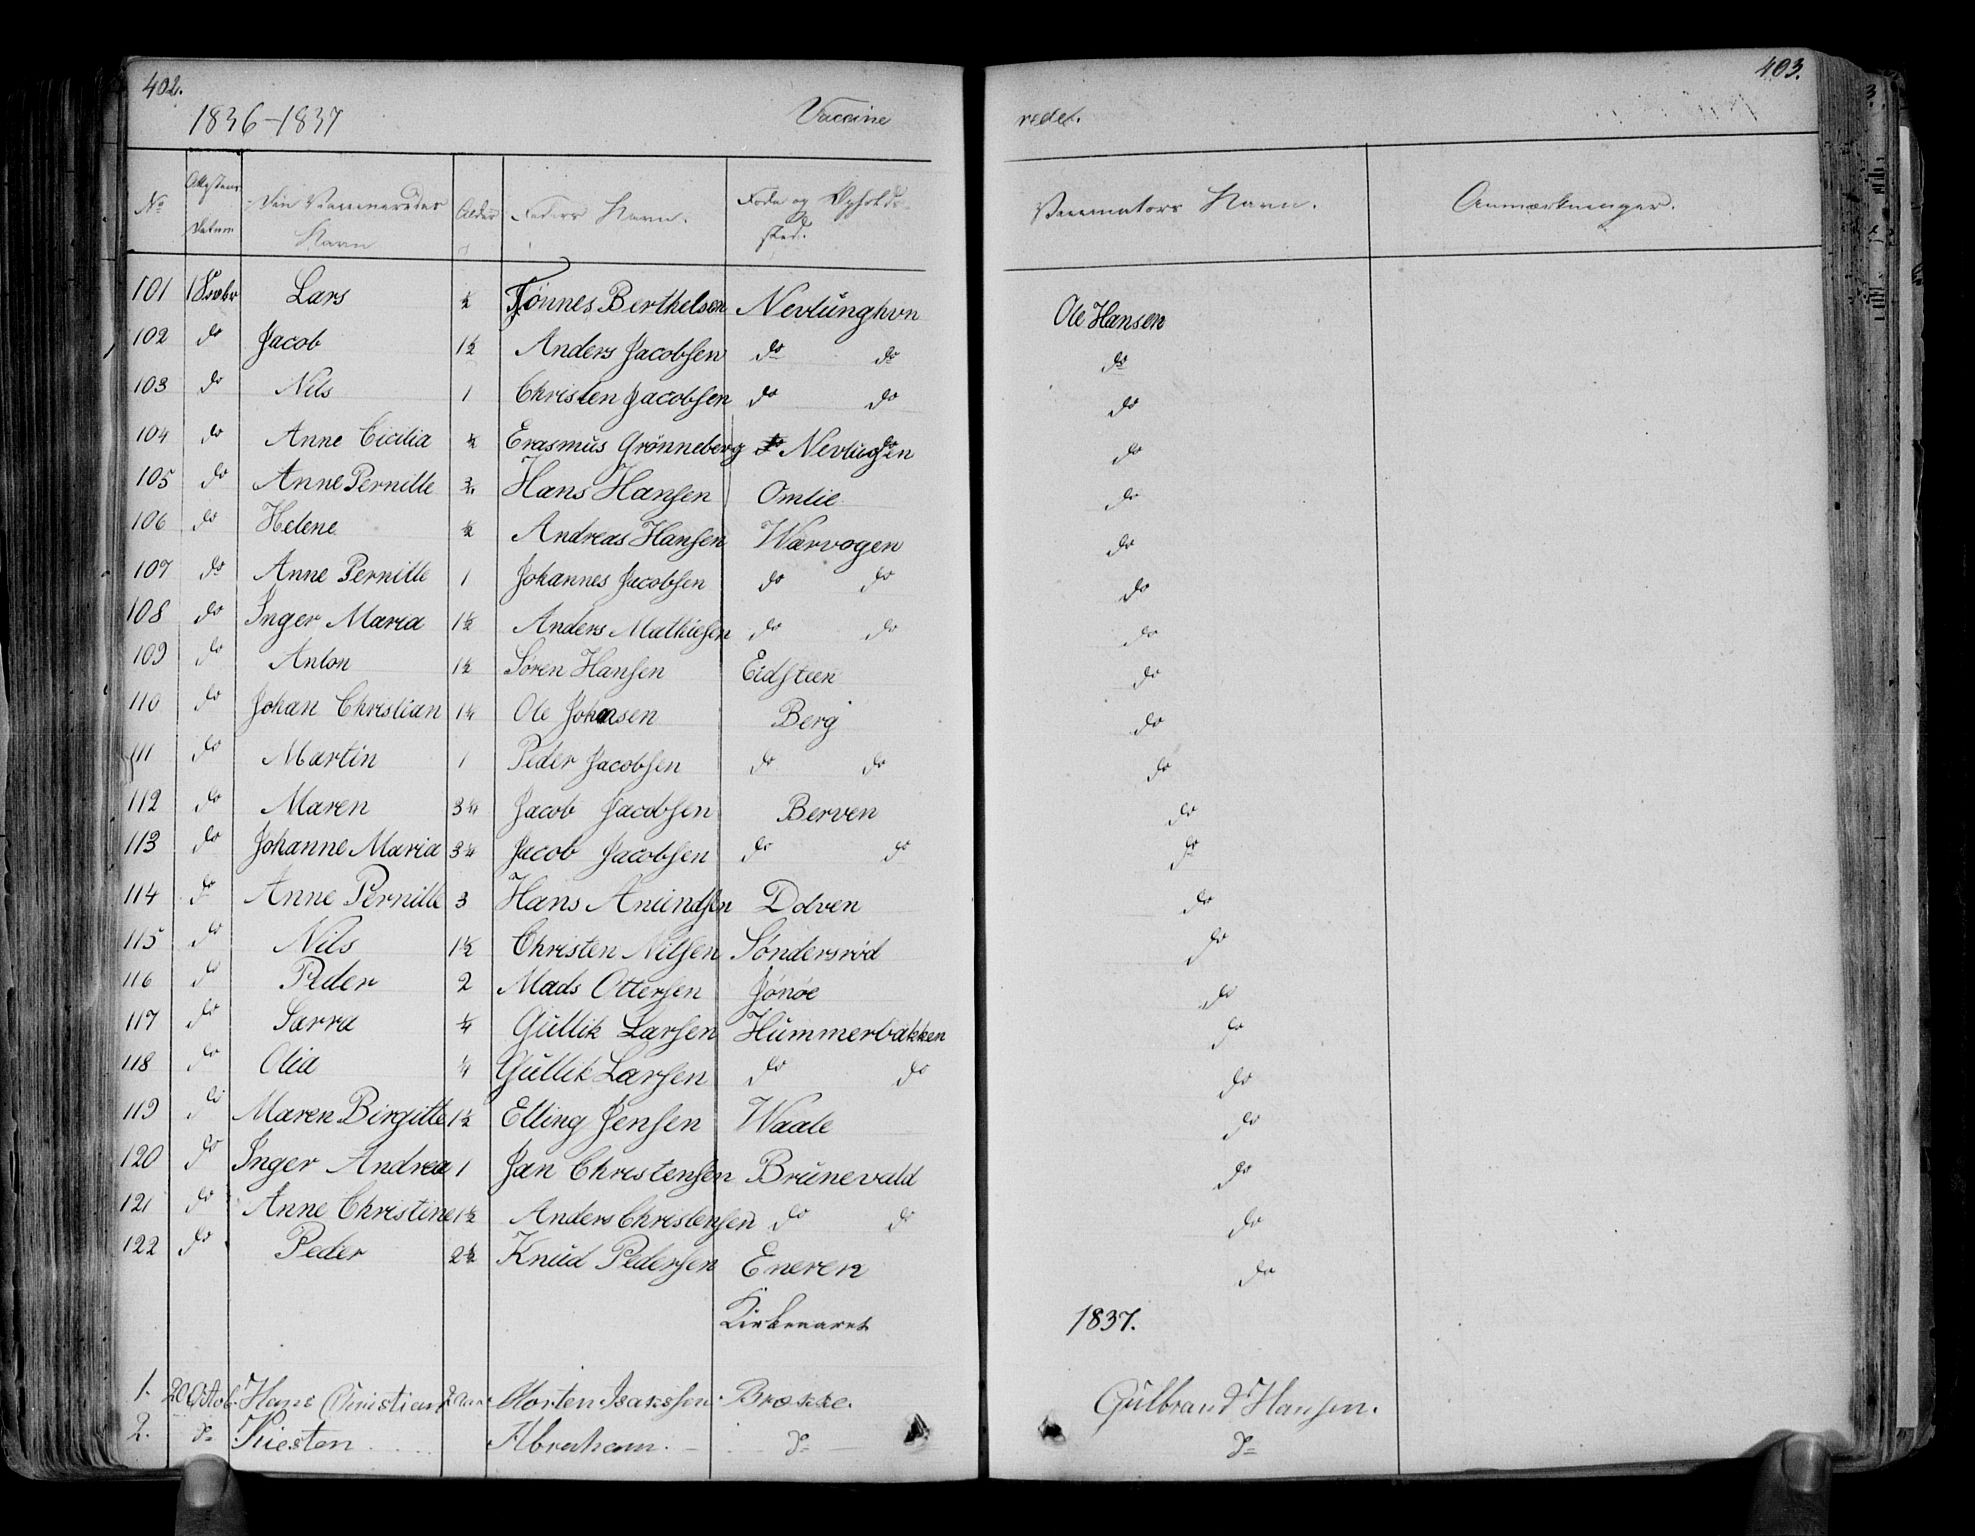 402.
403.
1836-1837 Vaccine rede.
No Attestens Datum Den Vaccineredes Navn Alder Faders Navn. Føde og Opholds- sted. Vaccinators Navn. Anmærkninger.
101 18 Lars ½ Tönnes Berthelsen Nevlunghvn Ole Hansen
102 do Jacob 1½ Anders Jacobsen do do do
103 do Nils 1 Christen Jacobsen do do do
104 do Anne Cicilia ½ Erasmus Grønneberg Nevlugen do
105 do Anne Pernille Hans Hansen Omlie do
106 do Helene ½ Andreas Hansen Warvogen do
107 do Anne Pernille 1 Johannes Jacobsen do do do
108 do Inger Maria 1½ Anders Mathiesen do do do
109 do Anton 1½ Søren Hansen Eidsteen do
110 do Johan Christian 1¼ Ole Johnsen Berg do
111 do Martin 1 Peder Jacobsen do do do
112 do Maren 3¼ Jacob Jacobsen Berven do
113 do Johanne Maria 3¼ Jacob Jacobsen do do do
114 do Anne Pernille 3 Hans Anundsen Dolven do
115 do Nils 1½ Christen Nilsen Søndersrød do
116 do Peder 2 Mads Ottersen Jónóe do
117 do Sarra ¼ Gullik Larsen Hummerbakken do
118 do Olia ¼ Gullik Larsen do do do
119 do Maren Birgitte 1½ Elling Jensen Waale do
120 do Inger Andrea 1 Jan Christensen Brunevald do
121 do Anne Christine 1½ Anders Christensen do do do
122 do Peder 2½ Knud Pedersen Eneren do
Kirkeaaret 1837.
1. 20 Octob. Hans Christian 2 Morten Isaksen Brække. Gulbrand Hansen.
2. do Kiesten Abraham. do do